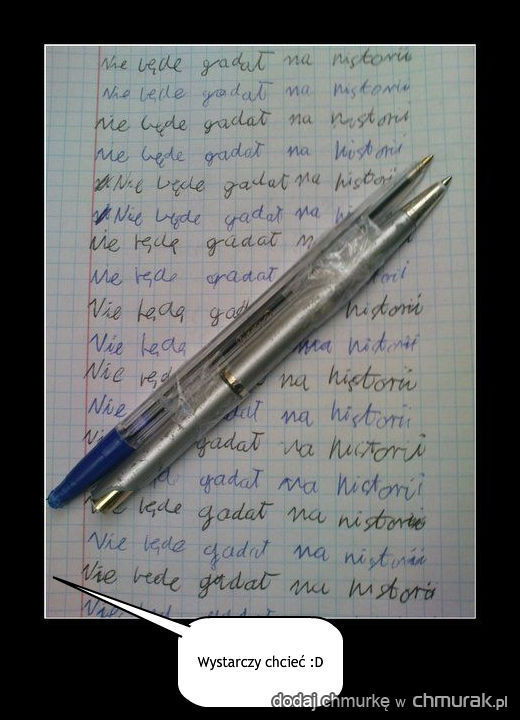 Nie będe gadał na historii
Nie będe gadał na historii
Nie będe gadał na historii
Nie będe gadał na historii
Nie będe gadał na historii
Nie będe gadał na
Nie będą gadał
Nie będe gadał
Nie będą historii
Nie będą na historii
Nie na historii
Nie na historii
gadał na historii
gadał na historii
będe gadał na historii
Nie będe gadał na historii
Nie bede gadał na historii
Nie
Wystarczy chcieć :D
dodaj chmurkę w chmurak.pl